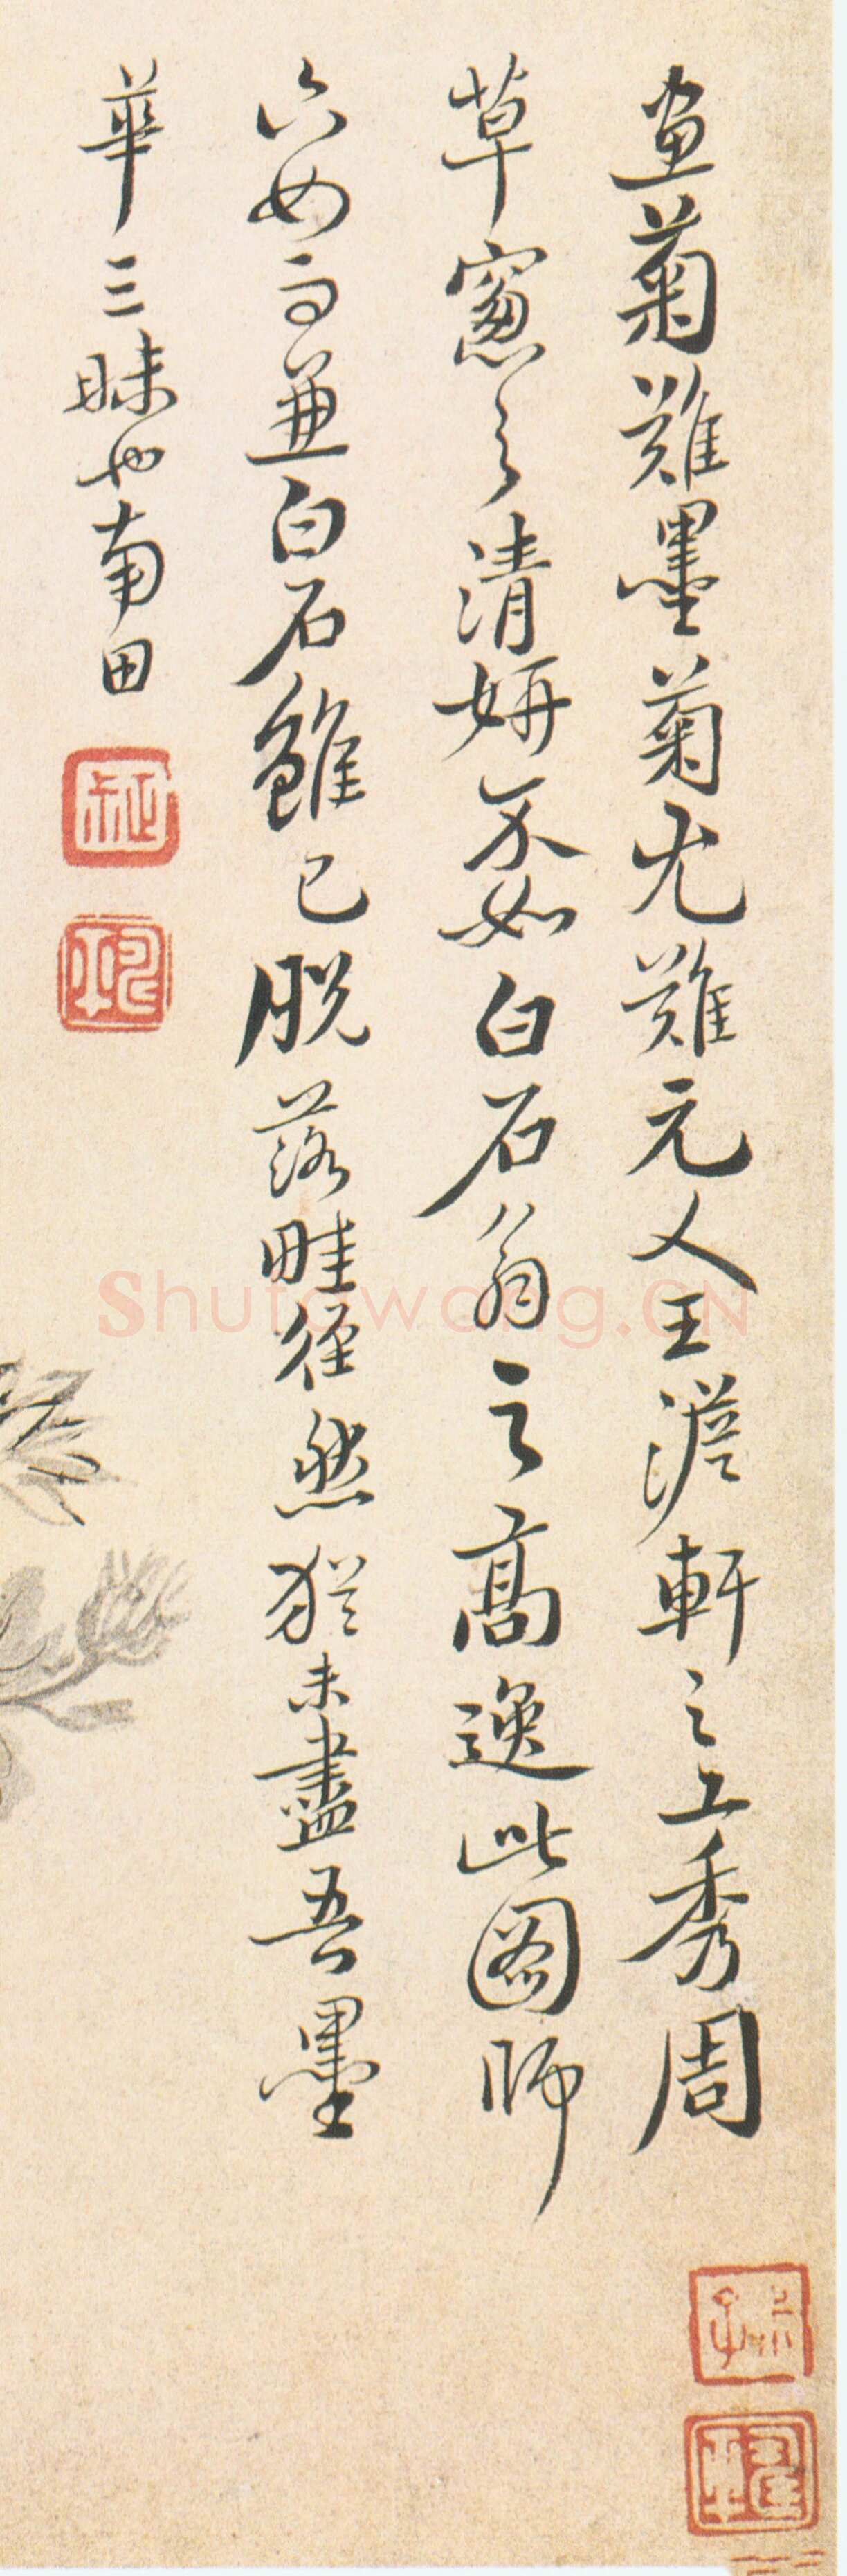 畫菊難墨菊尤難元人王澹軒之工秀周
草窻之清妍不如白石翁之高逸此圖師
六如而兼白石雖已脱落畦徑然猶未盡吾墨
華三昧也南田
Shufawang.CN